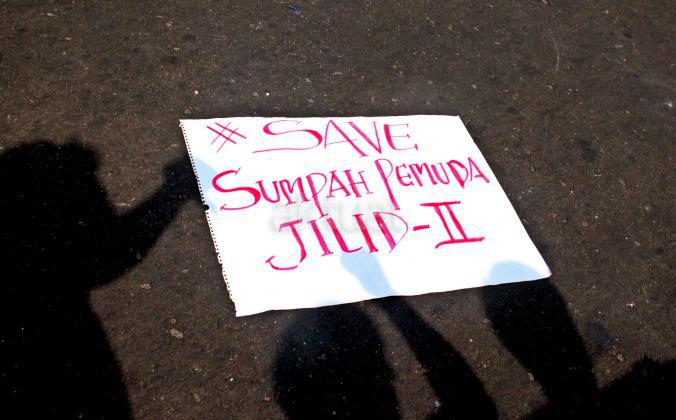 # SAVE
SUMPAH PEMUDA
JILID-II